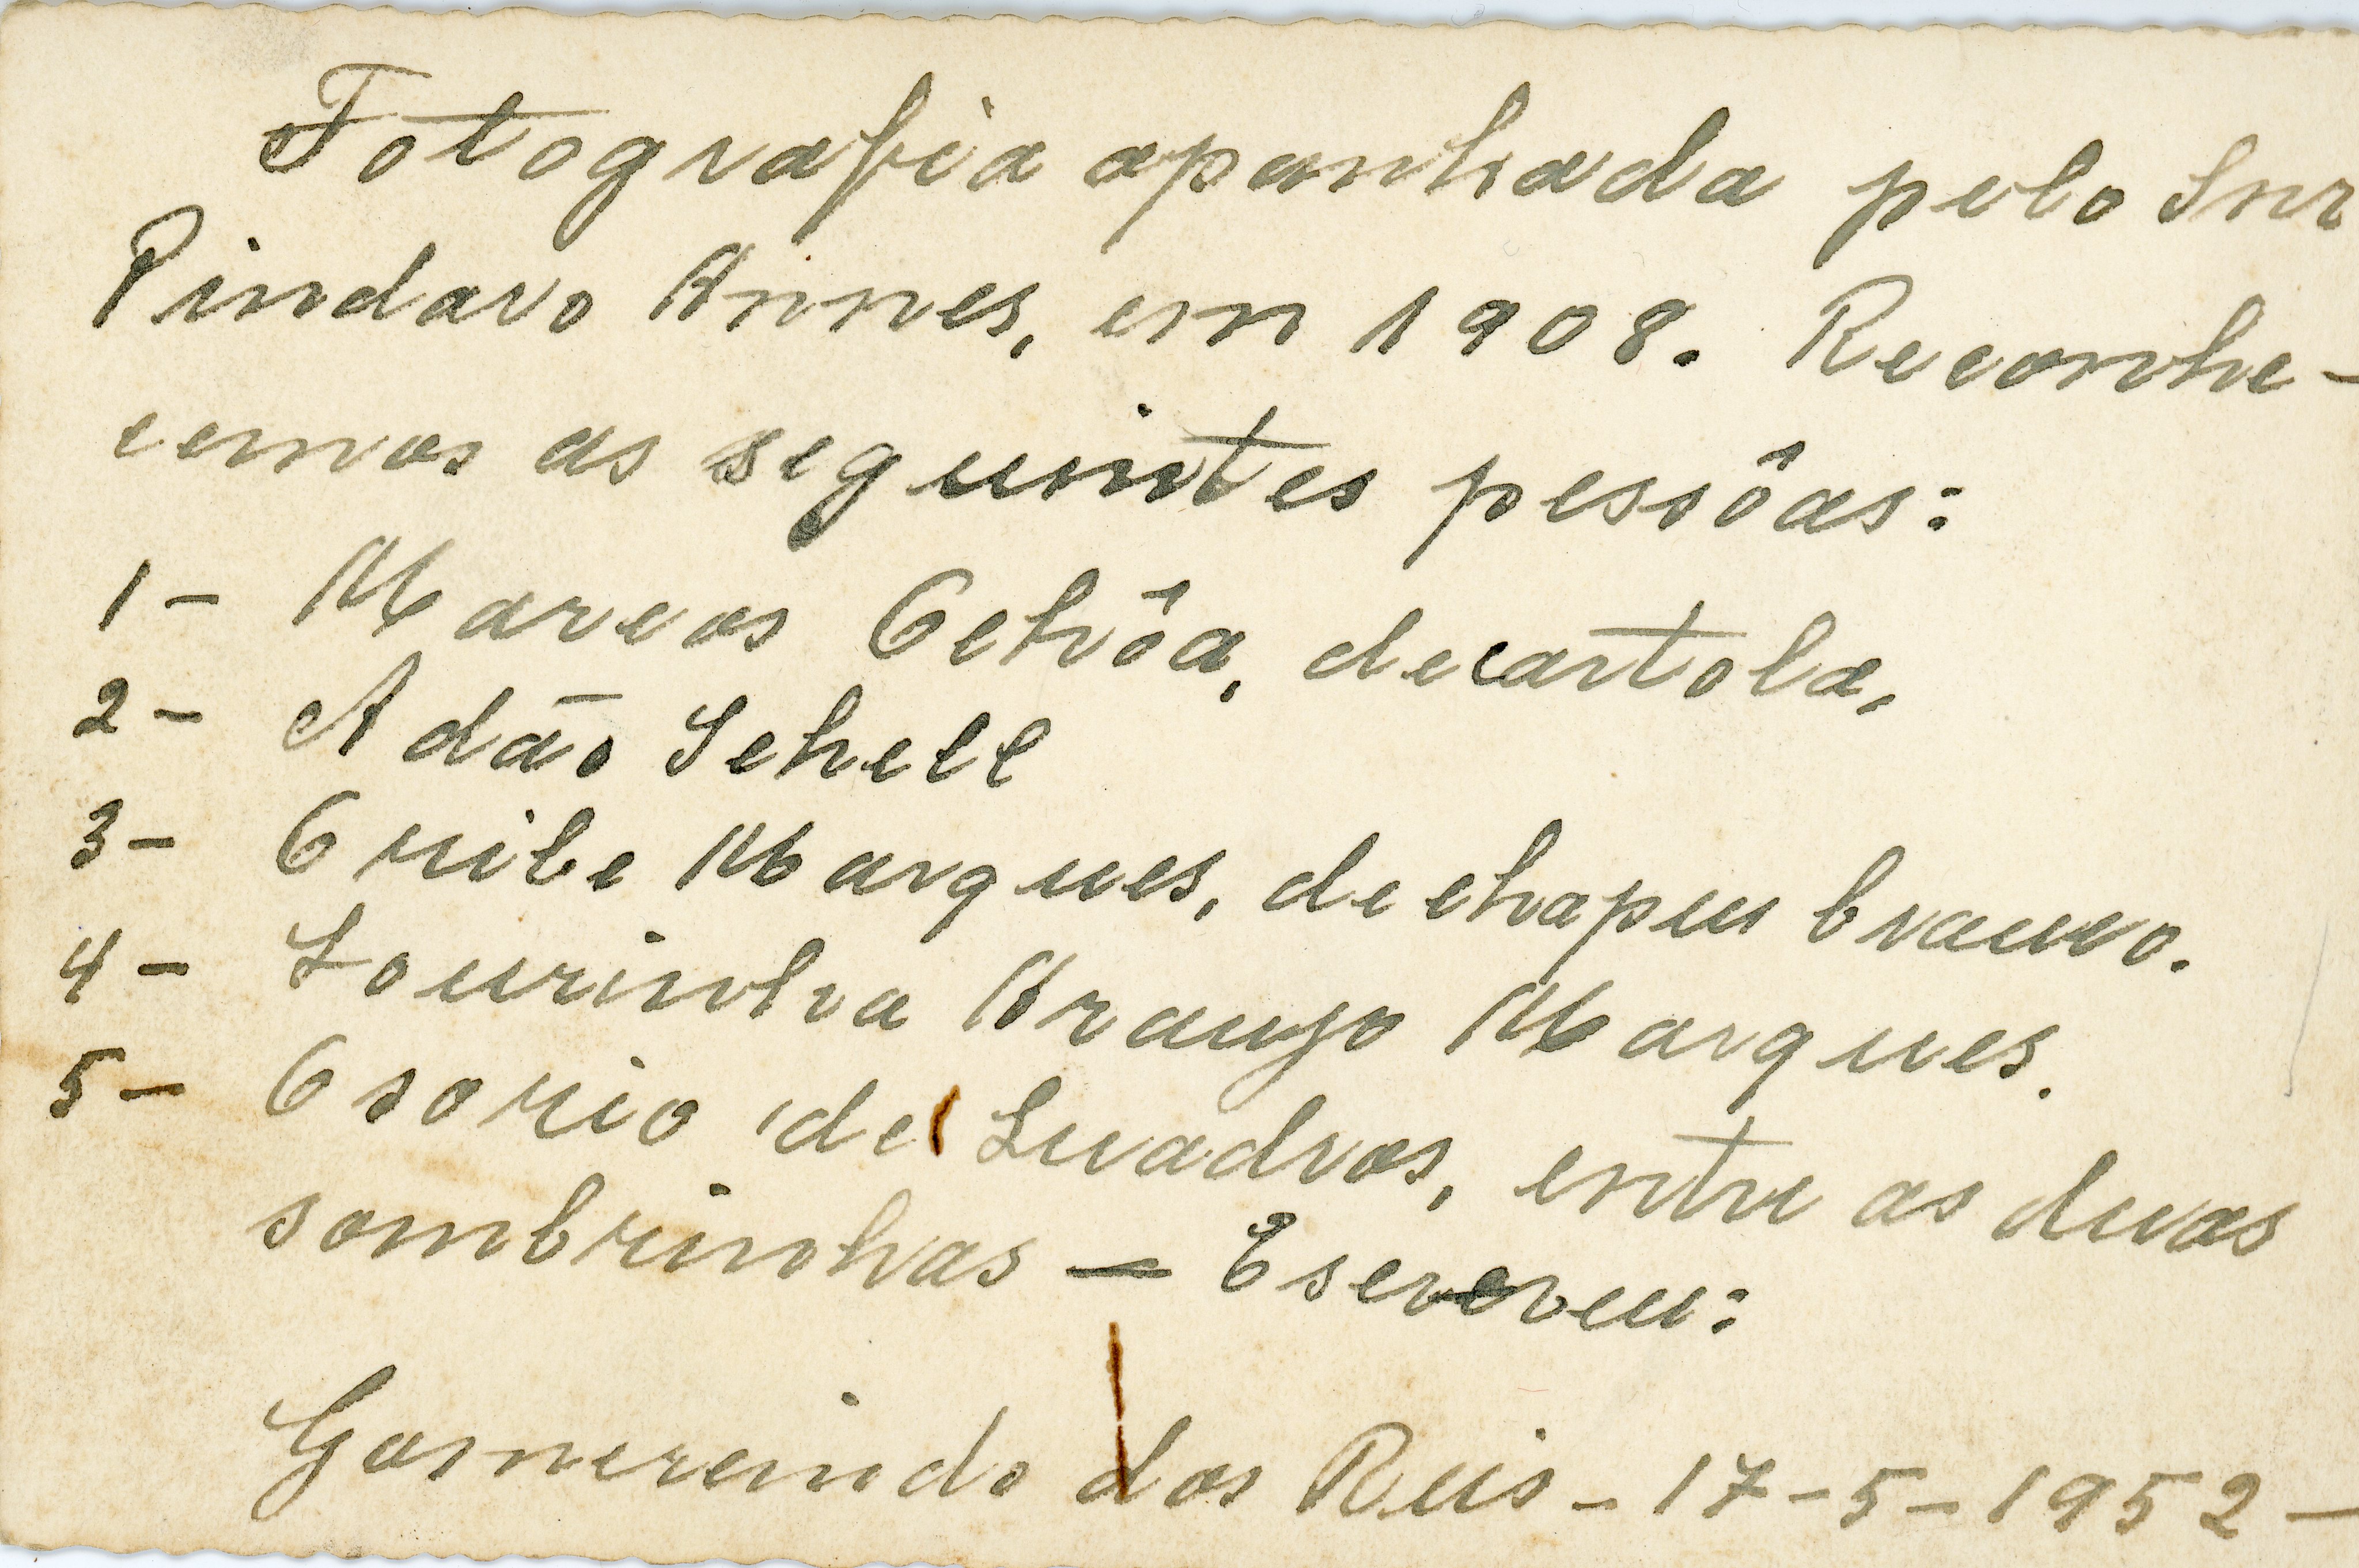 Fotografia apanhada pelo Snr
Pindaro Annes, em 1908. Reconhe-
cemos as seguintes pessôas:
1- Marcos Ochôa, de cartola,
2- Adão Schell
3- Oribe Marques, de chapeu branco.
4- Lourinha Araujo Marques.
5- Osorio de Quadros, entre as duas
sombrinhas — Escreveu:
Gomercindo dos Reis - 17-5-1952 -